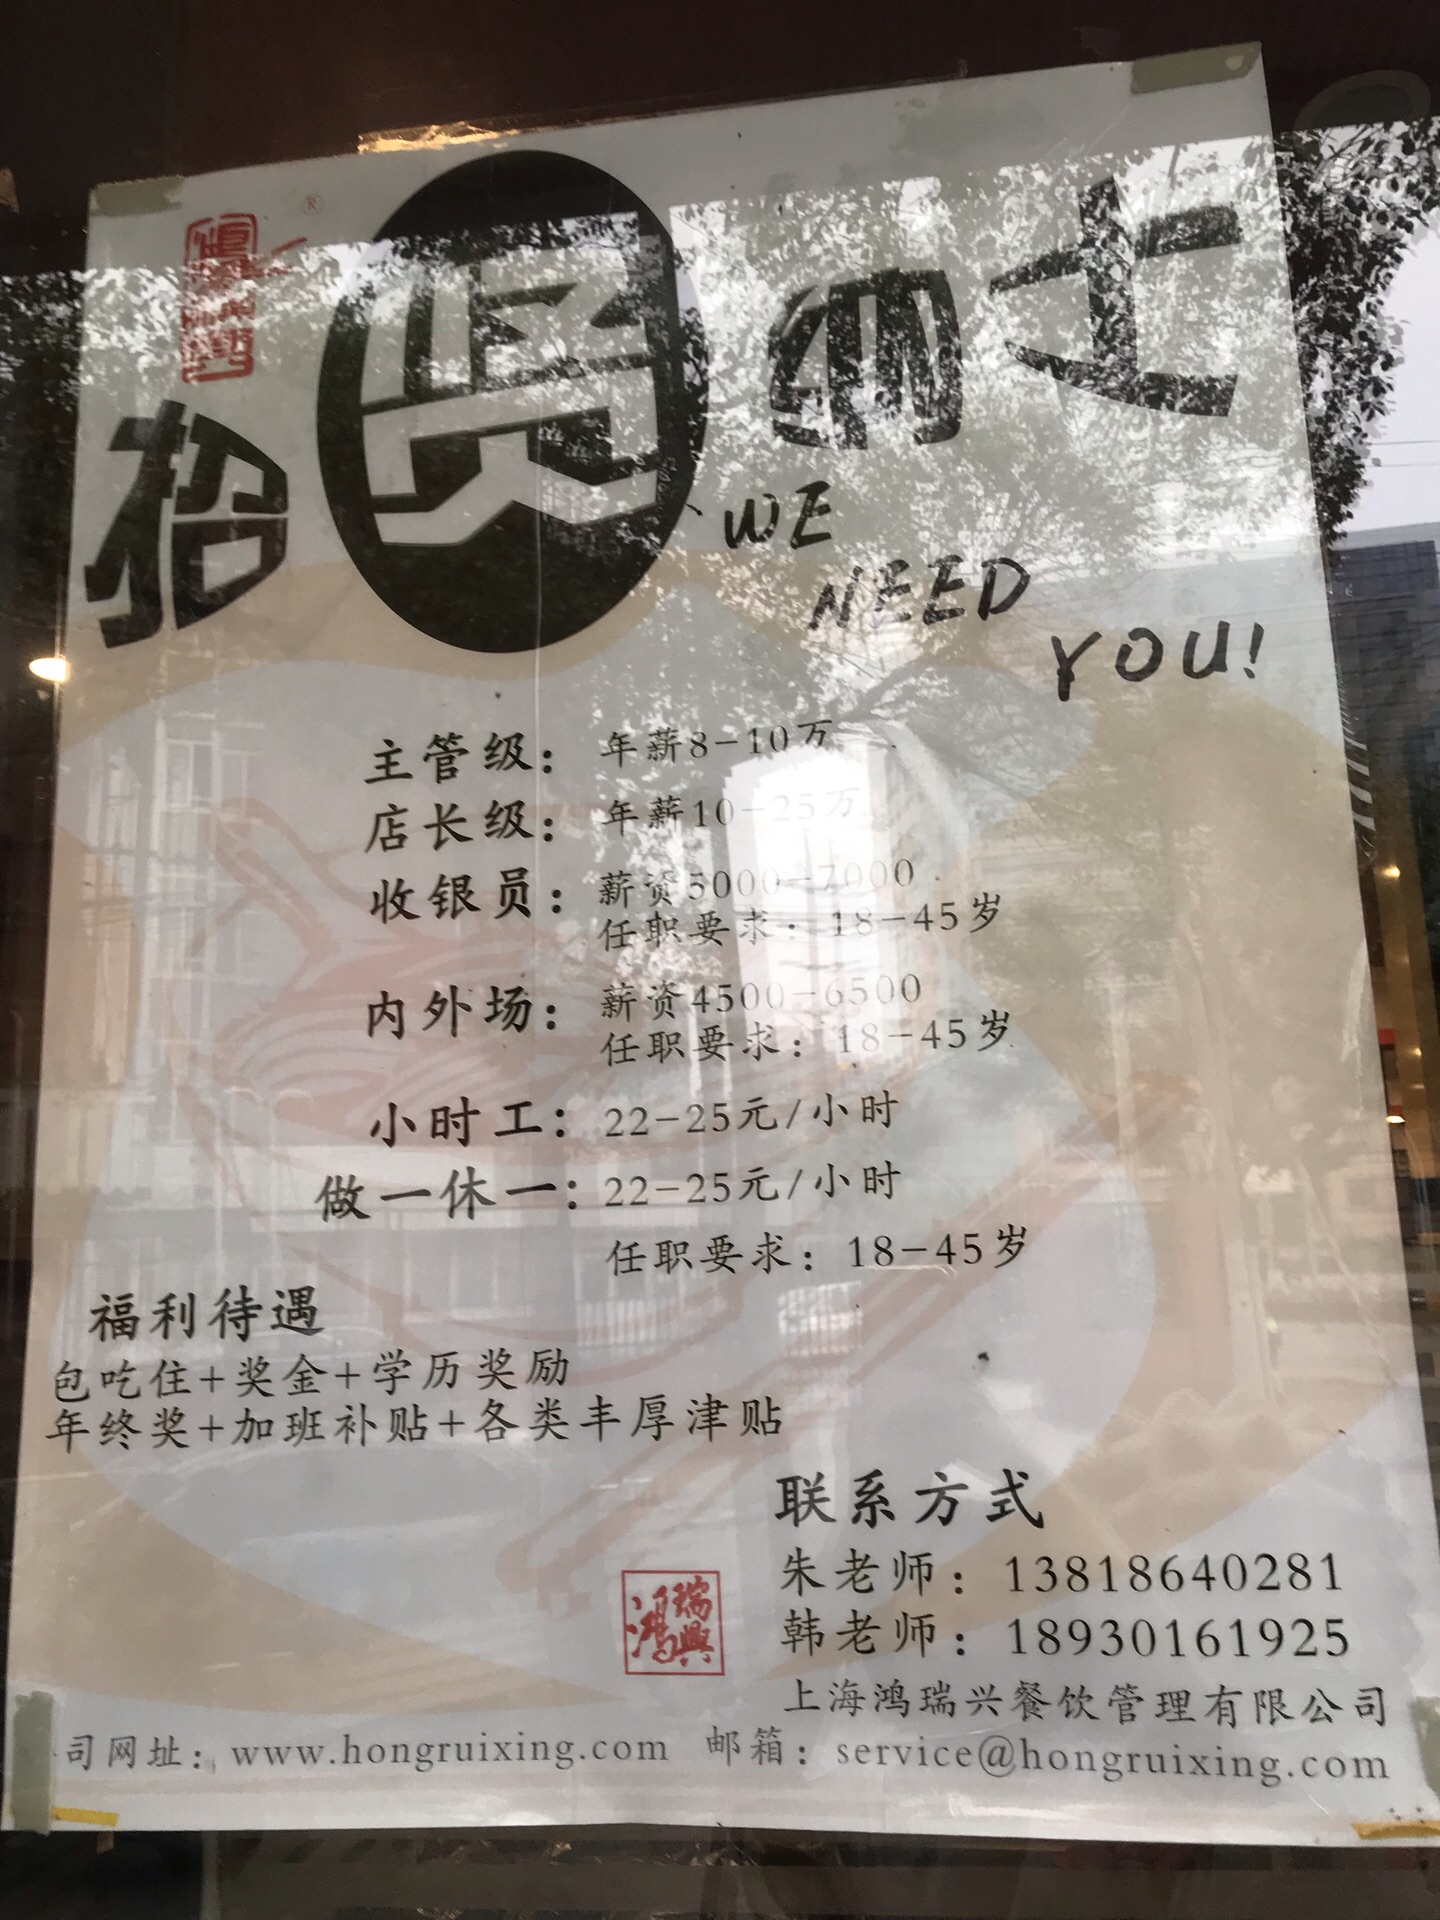 ®
招贤纳士
WE
NEED
YOU!
主管级： 年薪8-10万
店长级： 年薪10-25万
收银员： 薪资5000-7000
任职要求：18-45岁
内外场： 薪资4500-6500
任职要求：18-45岁
小时工：22-25元/小时
做一休一：22-25元/小时
任职要求：18-45岁
福利待遇
包吃住+奖金+学历奖励
年终奖+加班补贴+各类丰厚津贴
联系方式
朱老师：13818640281
韩老师：18930161925
鸿瑞興
上海鸿瑞兴餐饮管理有限公司
司网址：www.hongruixing.com 邮箱：service@hongruixing.com